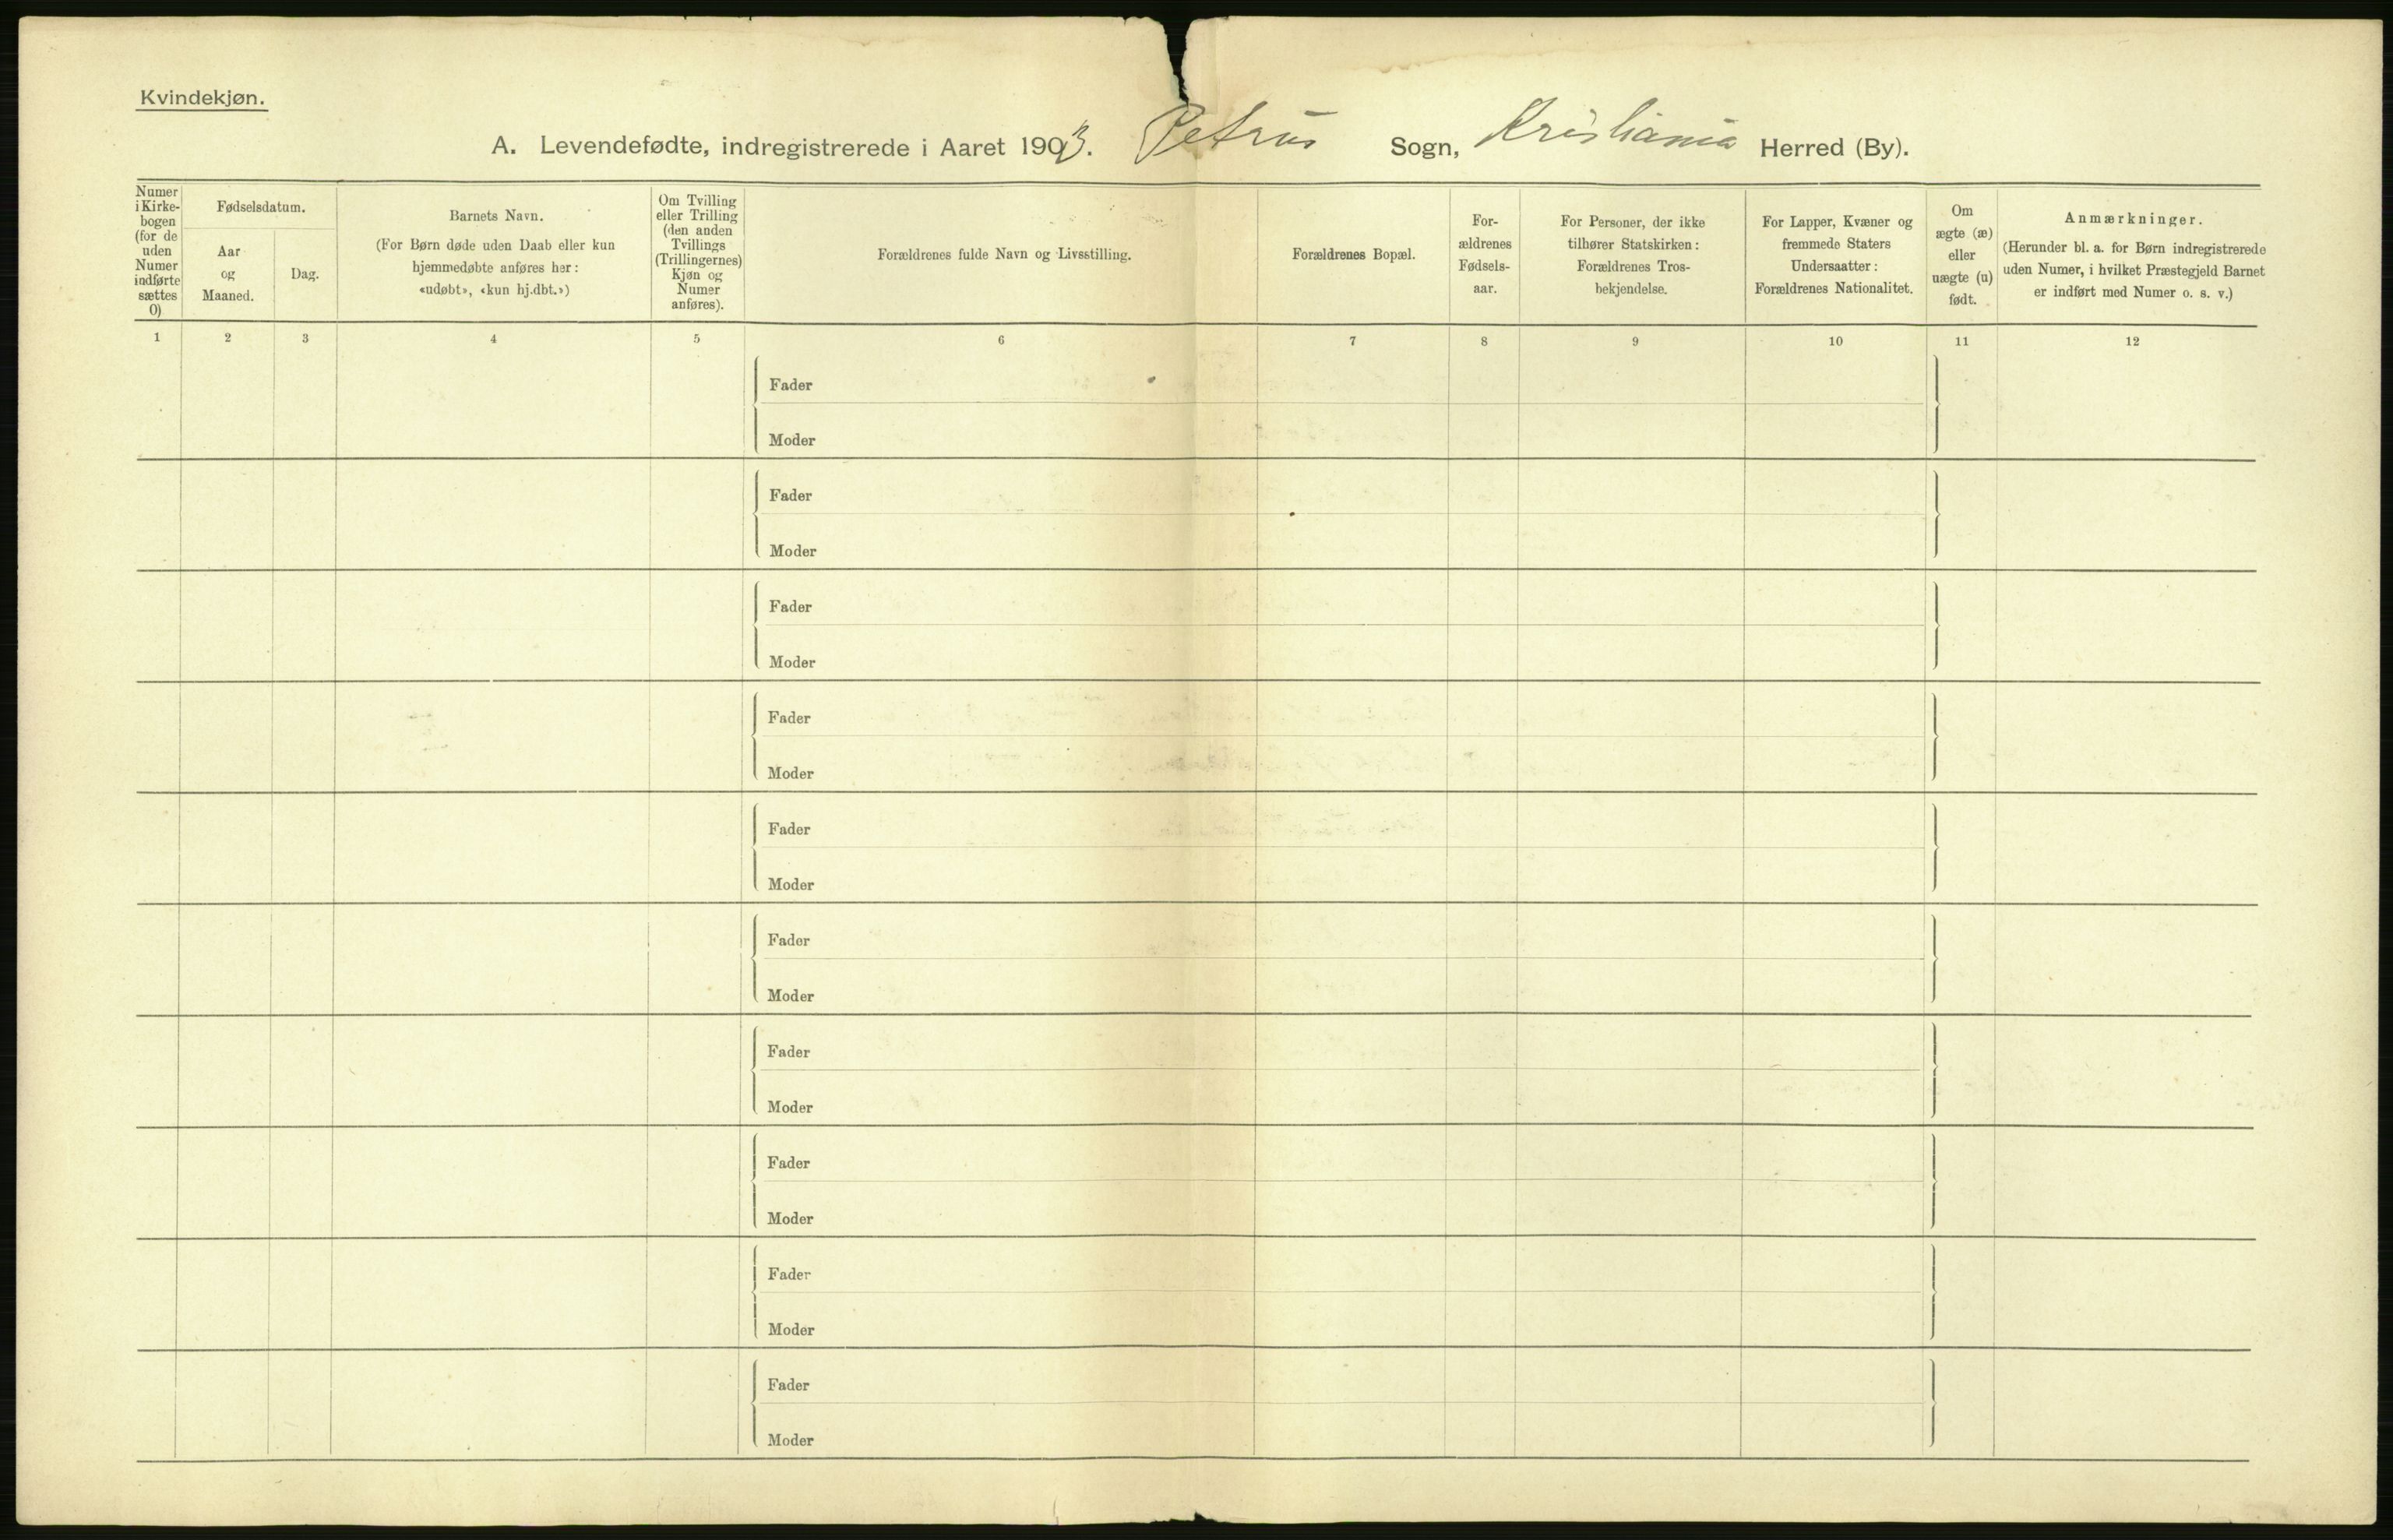 Kvindekjøn.
A. Levendefødte, indregistrerede i Aaret 1903. Petrus Sogn, Kristiania Herred (By).
Numer
i Kirke-
bogen
(for de
uden
Numer
indførte
sættes
0)
Fødselsdatum.
Aar
og
Maaned.
Dag.
Barnets Navn.
(For Børn døde uden Daab eller kun
hjemmedøbte anføres her:
«udøbt», «kun hj.dbt.»)
Om Tvilling
eller Trilling
(den anden
Tvillings
(Trillingernes)
Kjøn og
Numer
anføres).
Forældrenes fulde Navn og Livsstilling.
Forældrenes Bopæl.
For-
ældrenes
Fødsels-
aar.
For Personer, der ikke
tilhører Statskirken:
Forældrenes Tros-
bekjendelse.
For Lapper, Kvæner og
fremmede Staters
Undersaatter:
Forældrenes Nationalitet.
Om
ægte (æ)
eller
uægte (u)
født.
Anmærkninger.
(Herunder bl. a. for Børn indregistrerede
uden Numer, i hvilket Præstegjeld Barnet
er indført med Numer o. s. v.)
1 2 3 4 5 6 7 8 9 10 11 12
Fader
Moder
Fader
Moder
Fader
Moder
Fader
Moder
Fader
Moder
Fader
Moder
Fader
Moder
Fader
Moder
Fader
Moder
Fader
Moder